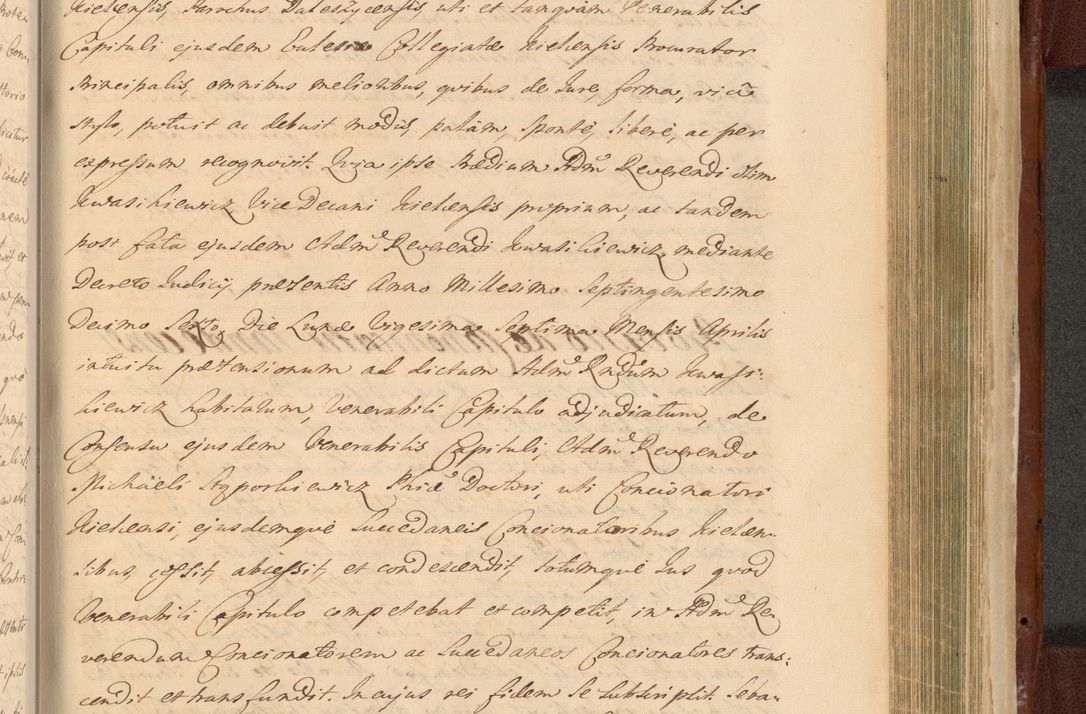 Kielcensis, Parochus Daleszycensis, uti et tanquam Venerabilis
Capituli ejusdem Ecclesiae Collegiatae Kielcensis Procurator
Principalis, omnibus melioribus, quibus de Jure, forma, via
stylo, potuit ac debuit modis, palam, sponte, libere, ac per
expressum recognovit. Quia ipse Praedium Adm Reverendi olim
Kwasikiewicz Vice Decani Kielcensis proprium, ac tandem
post fata ejusdem Adm Reverendi Kwasikiewicz, mediante
Decreto Judicij praesentis Anno Millesimo Septingentesimo
Decimo Sexto, Die Lunae Vigesima Septima Mensis Aprilis
intuitu praetensionum ad dictum Adm Rndum Kwasi:
kiewicz habitarum, Venerabili Capitulo adjudicatum, de
Consensu ejusdem Venerabilis Capituli, Adm Reverendo
Michaeli Stąporkiewicz Phiae Doctori, uti Concionatori
Kielcensi, ejusdemque Succedaneis Concionatoribus Kielcen-
sibus, cessit, abscessit, et condescendit, totumque Jus quod
Venerabili Capitulo competebat et competit, in Adm Re,
verendum Concionatorem ac Succedaneos Concionatores trans:
cendit et transfundit. In cujus rei fidem se subscripsit. Seba-